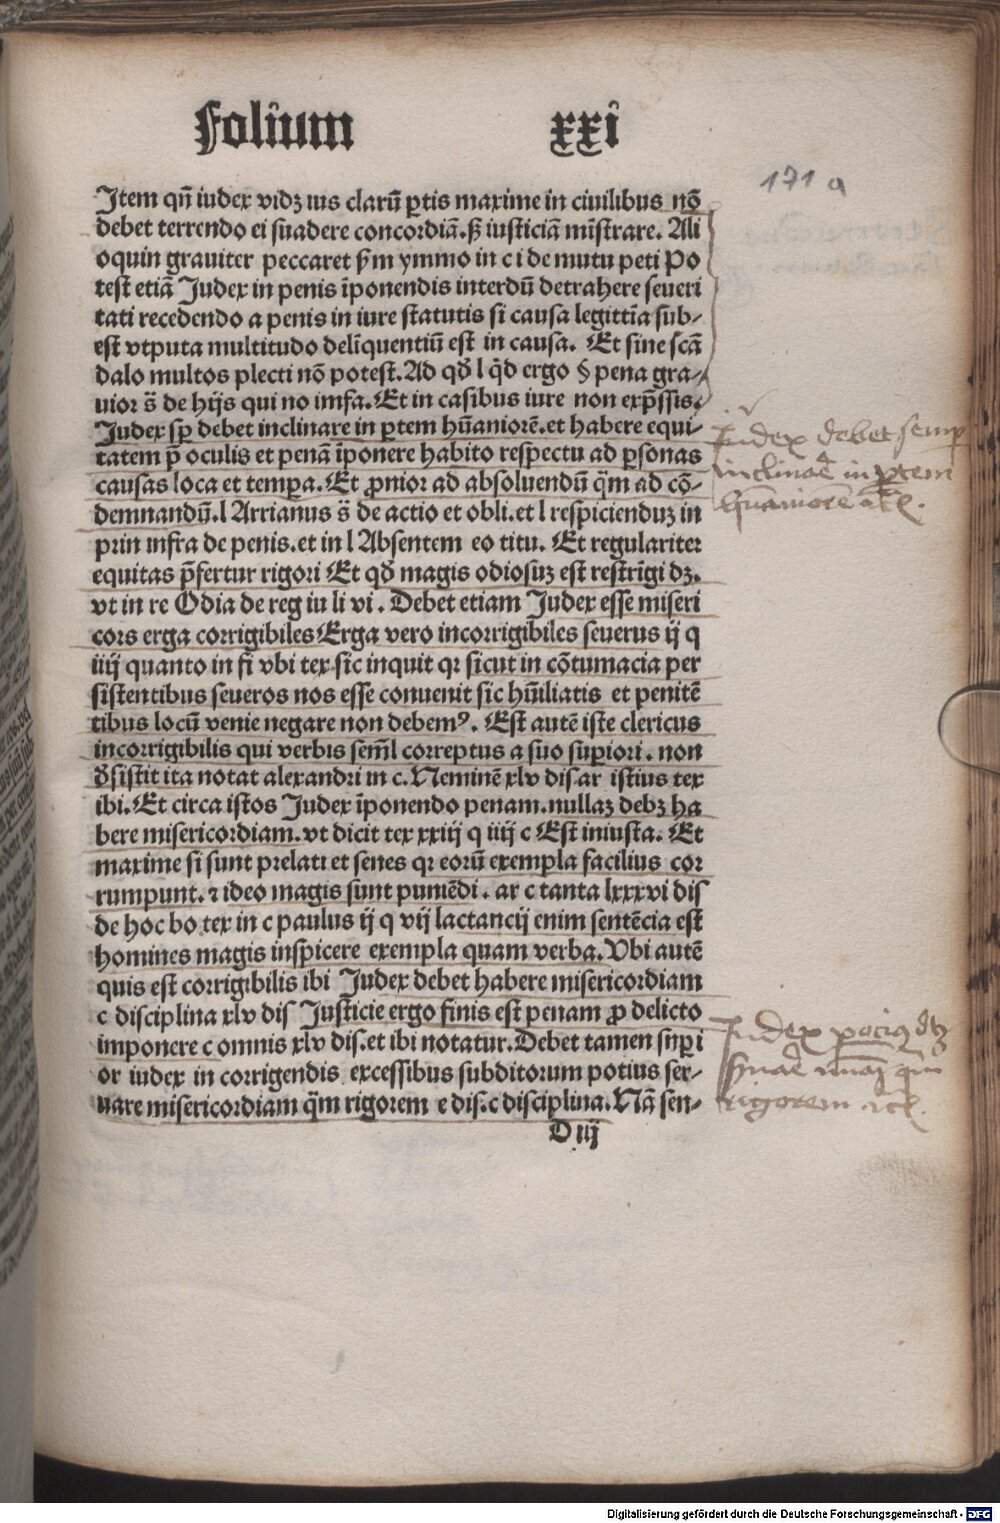 Folium xxi
171 a
Item qñ iudex vidꝫ ius clarū ꝑtis maxime in ciuilibus nō
debet terrendo ei suadere concordiā.sꝫ iusticiā mīstrare. Ali
oquin grauiter peccaret ẜm ymmo in c i de mutu peti Po
test etiā Judex in penis īponendis interdū detrahere seueri
tati recedendo a penis in iure statutis si causa legittīa sub⸗
est vtputa multitudo delīquentiū est in causa. Et sine scā
dalo multos plecti nō potest. Ad qđ l q̇d ergo § pena gra⸗
uior s̄ de hijs qui no imfa. Et in casibus iure non exp̄ssis.
Judex sꝑ debet inclinare in ꝑtem hūaniorē.et habere equi⸗
tatem p̄ oculis et penā īponere habito respectu ad ꝑsonas
causas loca et tempa. Et ꝓnior ad absoluendū q̄m ad cō⸗
demnandū.l Arrianus s̄ de actio et obli.et l respicienduꝫ in
prin infra de penis.et in l Absentem eo titu. Et regulariter
equitas p̄fertur rigori Et qđ magis odiosuꝫ est restrīgi dꝫ.
vt in re Odia de reg iu li vi. Debet etiam Judex esse miseri
cors erga corrigibiles Erga vero incorrigibiles seuerus ij q
iiij quanto in fi vbi tex sic inquit qꝛ sicut in cōtumacia per
sistentibus seueros nos esse conuenit sic hūiliatis et penitē
tibus locū venie negare non debemꝰ. Est autē iste clericus
incorrigibilis qui verbis sem̄l correptus a suo suꝑiori. non
đsistit ita notat alexandri in c. Neminē xlv dis.ar istius tex
ibi. Et circa istos Judex īponendo penam.nullaꝫ debꝫ ha
bere misericordiam.vt dicit tex xxiij q iiij c Est iniusta. Et
maxime si sunt prelati et senes qꝛ eorū exempla facilius cor
rumpunt. ⁊ ideo magis sunt puniēdi. ar c tanta lxxxvi dis
de hoc bo tex in c paulus ij q vij lactancij enim sentēcia est
homines magis inspicere exempla quam verba. Vbi autē
quis est corrigibilis ibi Judex debet habere misericordiam
c disciplina xlv dis Justicie ergo finis est penam ꝓ delicto
imponere c omnis xlv dis.et ibi notatur. Debet tamen suꝑi
or iudex in corrigendis excessibus subditorum potius ser⸗
uare misericordiam q̄m rigorem e dis.c disciplina. Nā sen⸗
D iij
Judex debet semꝑ
inclinare in ꝑtem
hūaniorē
Judex pociꝰ dꝫ
rigorem
Digitalisierung gefördert durch die Deutsche Forschungsgemeinschaft - DFG